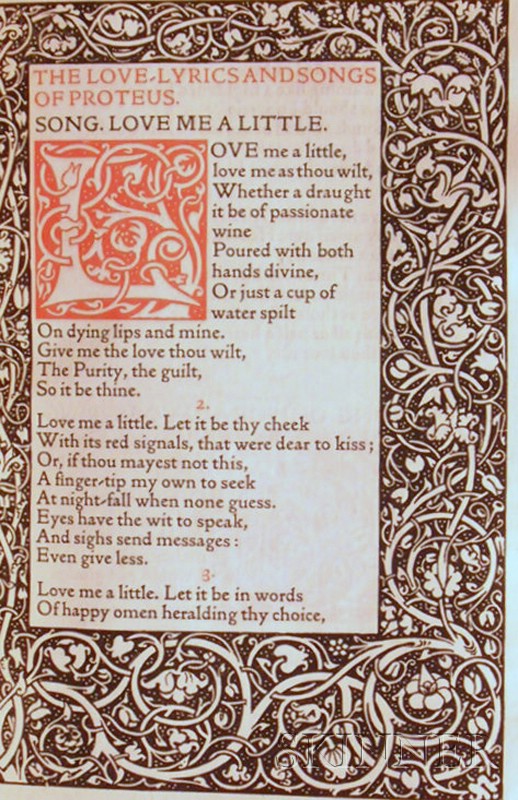 THE LOVE-LYRICS AND SONGS
OF PROTEUS.
SONG. LOVE ME A LITTLE.
LOVE me a little,
love me as thou wilt,
Whether a draught
it be of passionate
wine
Poured with both
hands divine,
Or just a cup of
water spilt
On dying lips and mine.
Give me the love thou wilt,
The Purity, the guilt,
So it be thine.
2.
Love me a little. Let it be thy cheek
With its red signals, that were dear to kiss;
Or, if thou mayest not this,
A finger-tip my own to seek
At night-fall when none guess.
Eyes have the wit to speak,
And sighs send messages:
Even give less.
3.
Love me a little. Let it be in words
Of happy omen heralding thy choice,
SKINNER